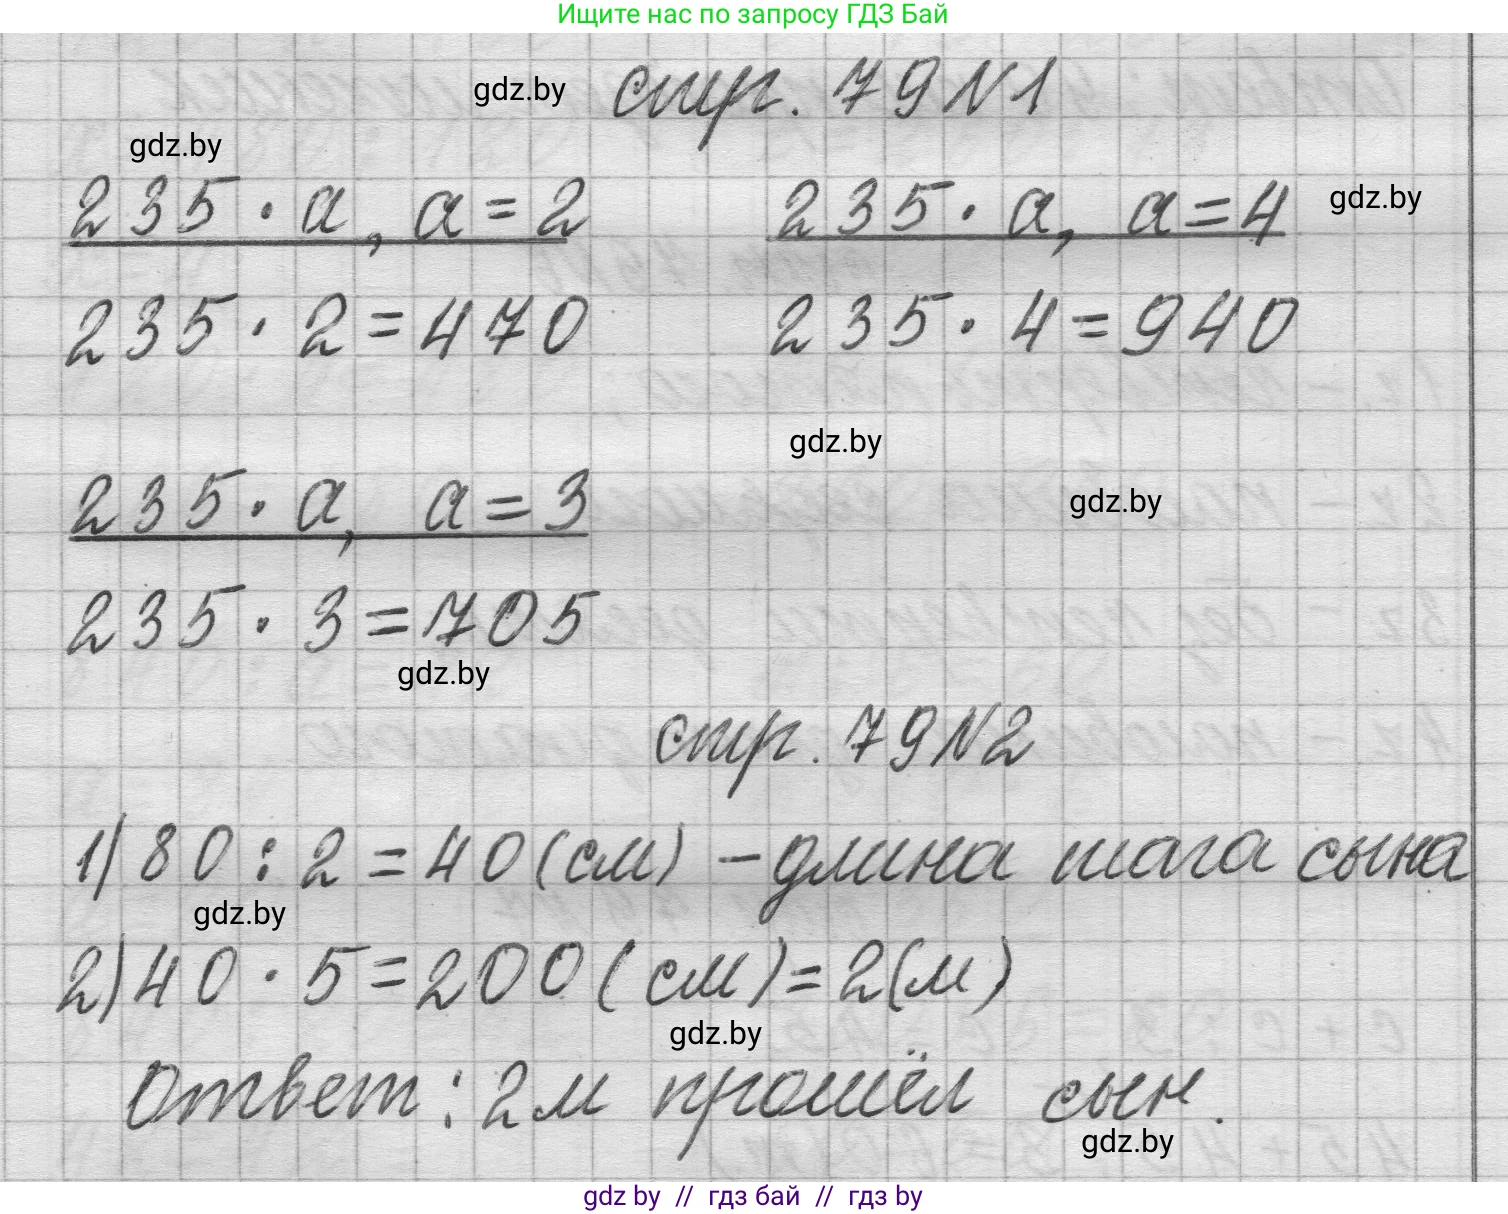 Ищите нас по запросу ГДЗ Бай
gdz.by стр. 79 №1
gdz.by
235 · а, а = 2 235 · а, а = 4 gdz.by
235 · 2 = 470 235 · 4 = 940
gdz.by
235 · а, а = 3 gdz.by
235 · 3 = 705
gdz.by
стр. 79 №2
1) 80 : 2 = 40 (см) – длина шага сына
gdz.by
2) 40 · 5 = 200 (см) = 2 (м)
gdz.by
Ответ: 2 м прошёл сын.
gdz.by
gdz by // гдз бай // гдз by